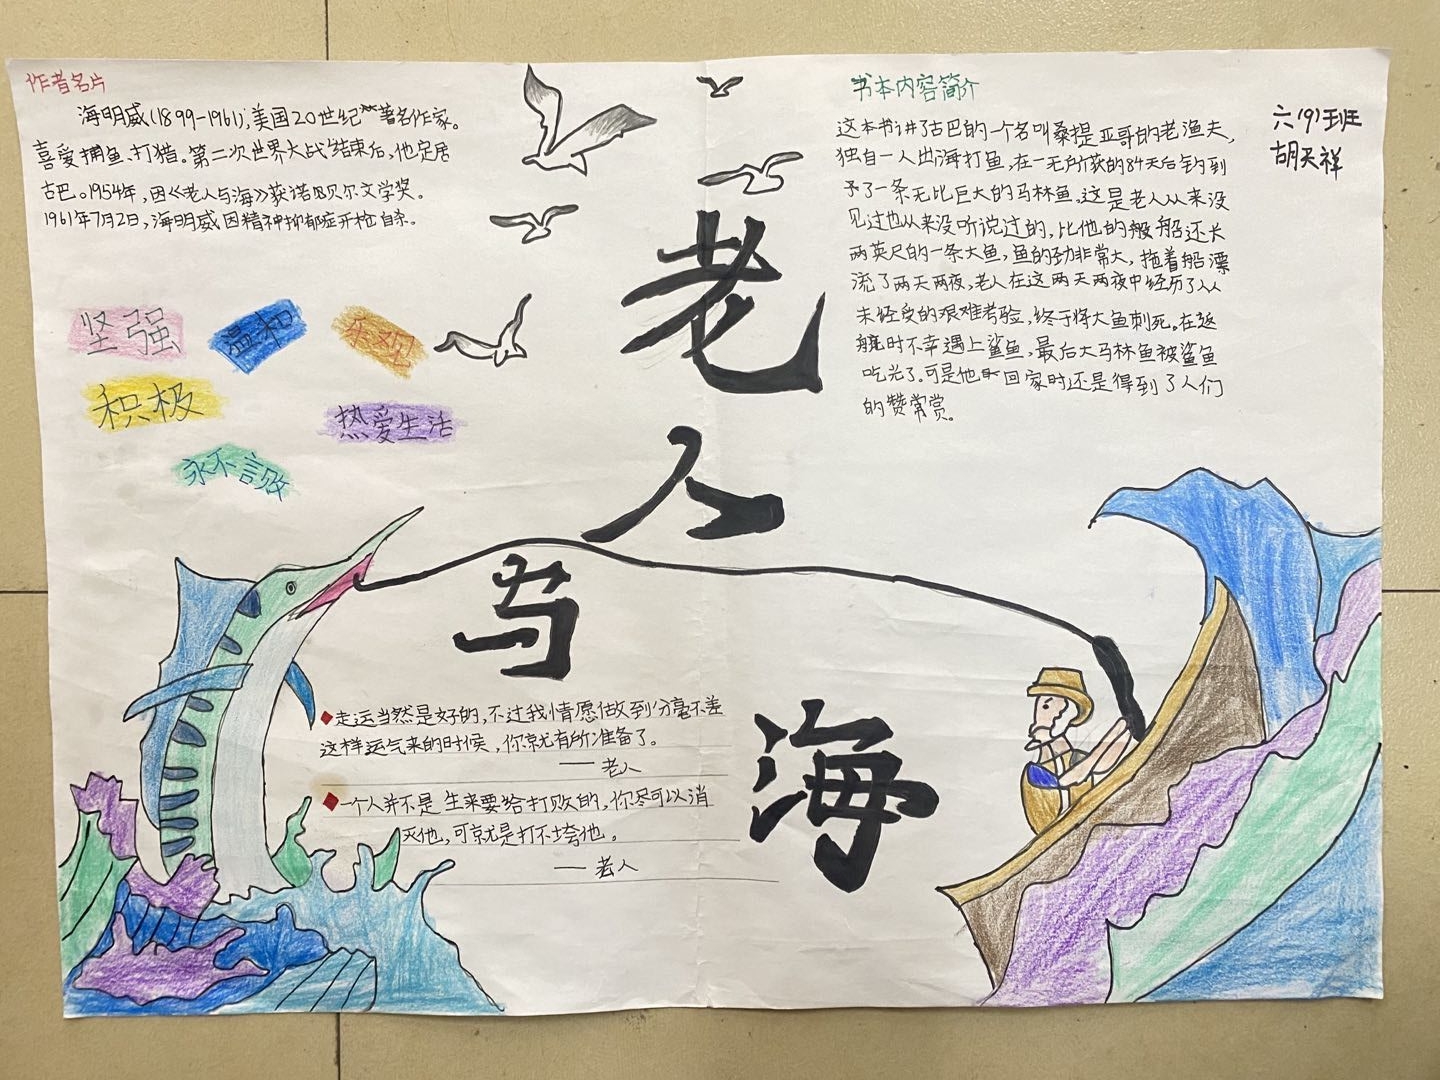 作者名片
海明威(1899-1961),美国20世纪著名作家。
喜爱捕鱼、打猎。第二次世界大战结束后,他定居
古巴。1954年,因《老人与海》获诺贝尔文学奖。
1961年7月2日,海明威因精神抑郁症开枪自杀。
坚强
温和
乐观
积极
热爱生活
永不言败
老
人
与
海
书本内容简介
这本书讲了古巴的一个名叫桑提亚哥的老渔夫,
独自一人出海打鱼,在一无所获的84天后钓到
了一条无比巨大的马林鱼。这是老人从来没
见过也从来没听说过的,比他的船还长
两英尺的一条大鱼,鱼的劲非常大,拖着船漂
流了两天两夜,老人在这两天两夜中经历了从
未经受的艰难考验,终于将大鱼刺死。在返
航时不幸遇上鲨鱼,最后大马林鱼被鲨鱼
吃光了。可是他回家时还是得到了人们
的赞赏。
六(9)班
胡天祥
走运当然是好的,不过我情愿做到分毫不差
这样运气来的时候,你就有所准备了。
——老人
一个人并不是生来要给打败的,你尽可以消
灭他,可就是打不垮他。
——老人